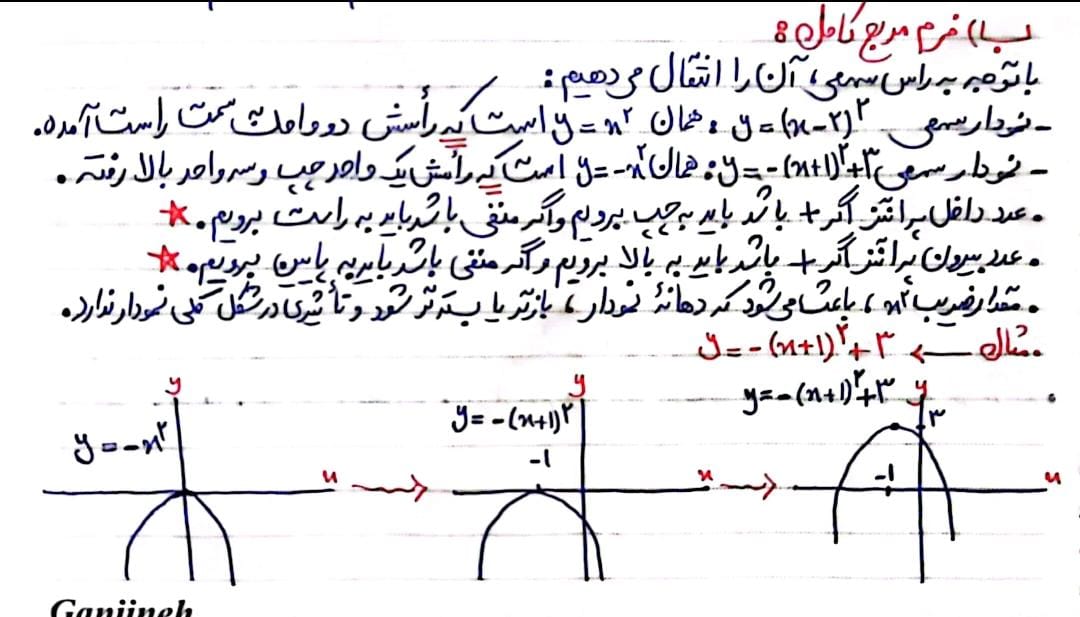 ب) فرم مربع کامل:
با توجه به راس سهمی، آن را انتقال می دهیم:
- نمودار سهمی y = (x-۲)^۲ : همان y = x^۲ است که رأسش دو واحد به سمت راست آمده.
- نمودار سهمی y = -(x+۱)^۲+۳ : همان y = -x^۲ است که رأسش یک واحد چپ و سه واحد بالا رفته.
. عدد داخل پرانتز اگر + باشد باید به چپ برویم و اگر منفی باشد باید به راست برویم. ★
. عدد بیرون پرانتز اگر + باشد باید به بالا برویم و اگر منفی باشد باید به پایین برویم. ★
. مقدار ضریب x^۲، باعث می شود که دهانهٔ نمودار، بازتر یا بسته تر شود و تأثیری در شکل کلی نمودار ندارد.
. مثال ← y = -(x+۱)^۲+۳
y = -x^۲
y
x
y = -(x+۱)^۲
y
-۱
x
y = -(x+۱)^۲+۳
y
۳
-۱
x
Ganjineh